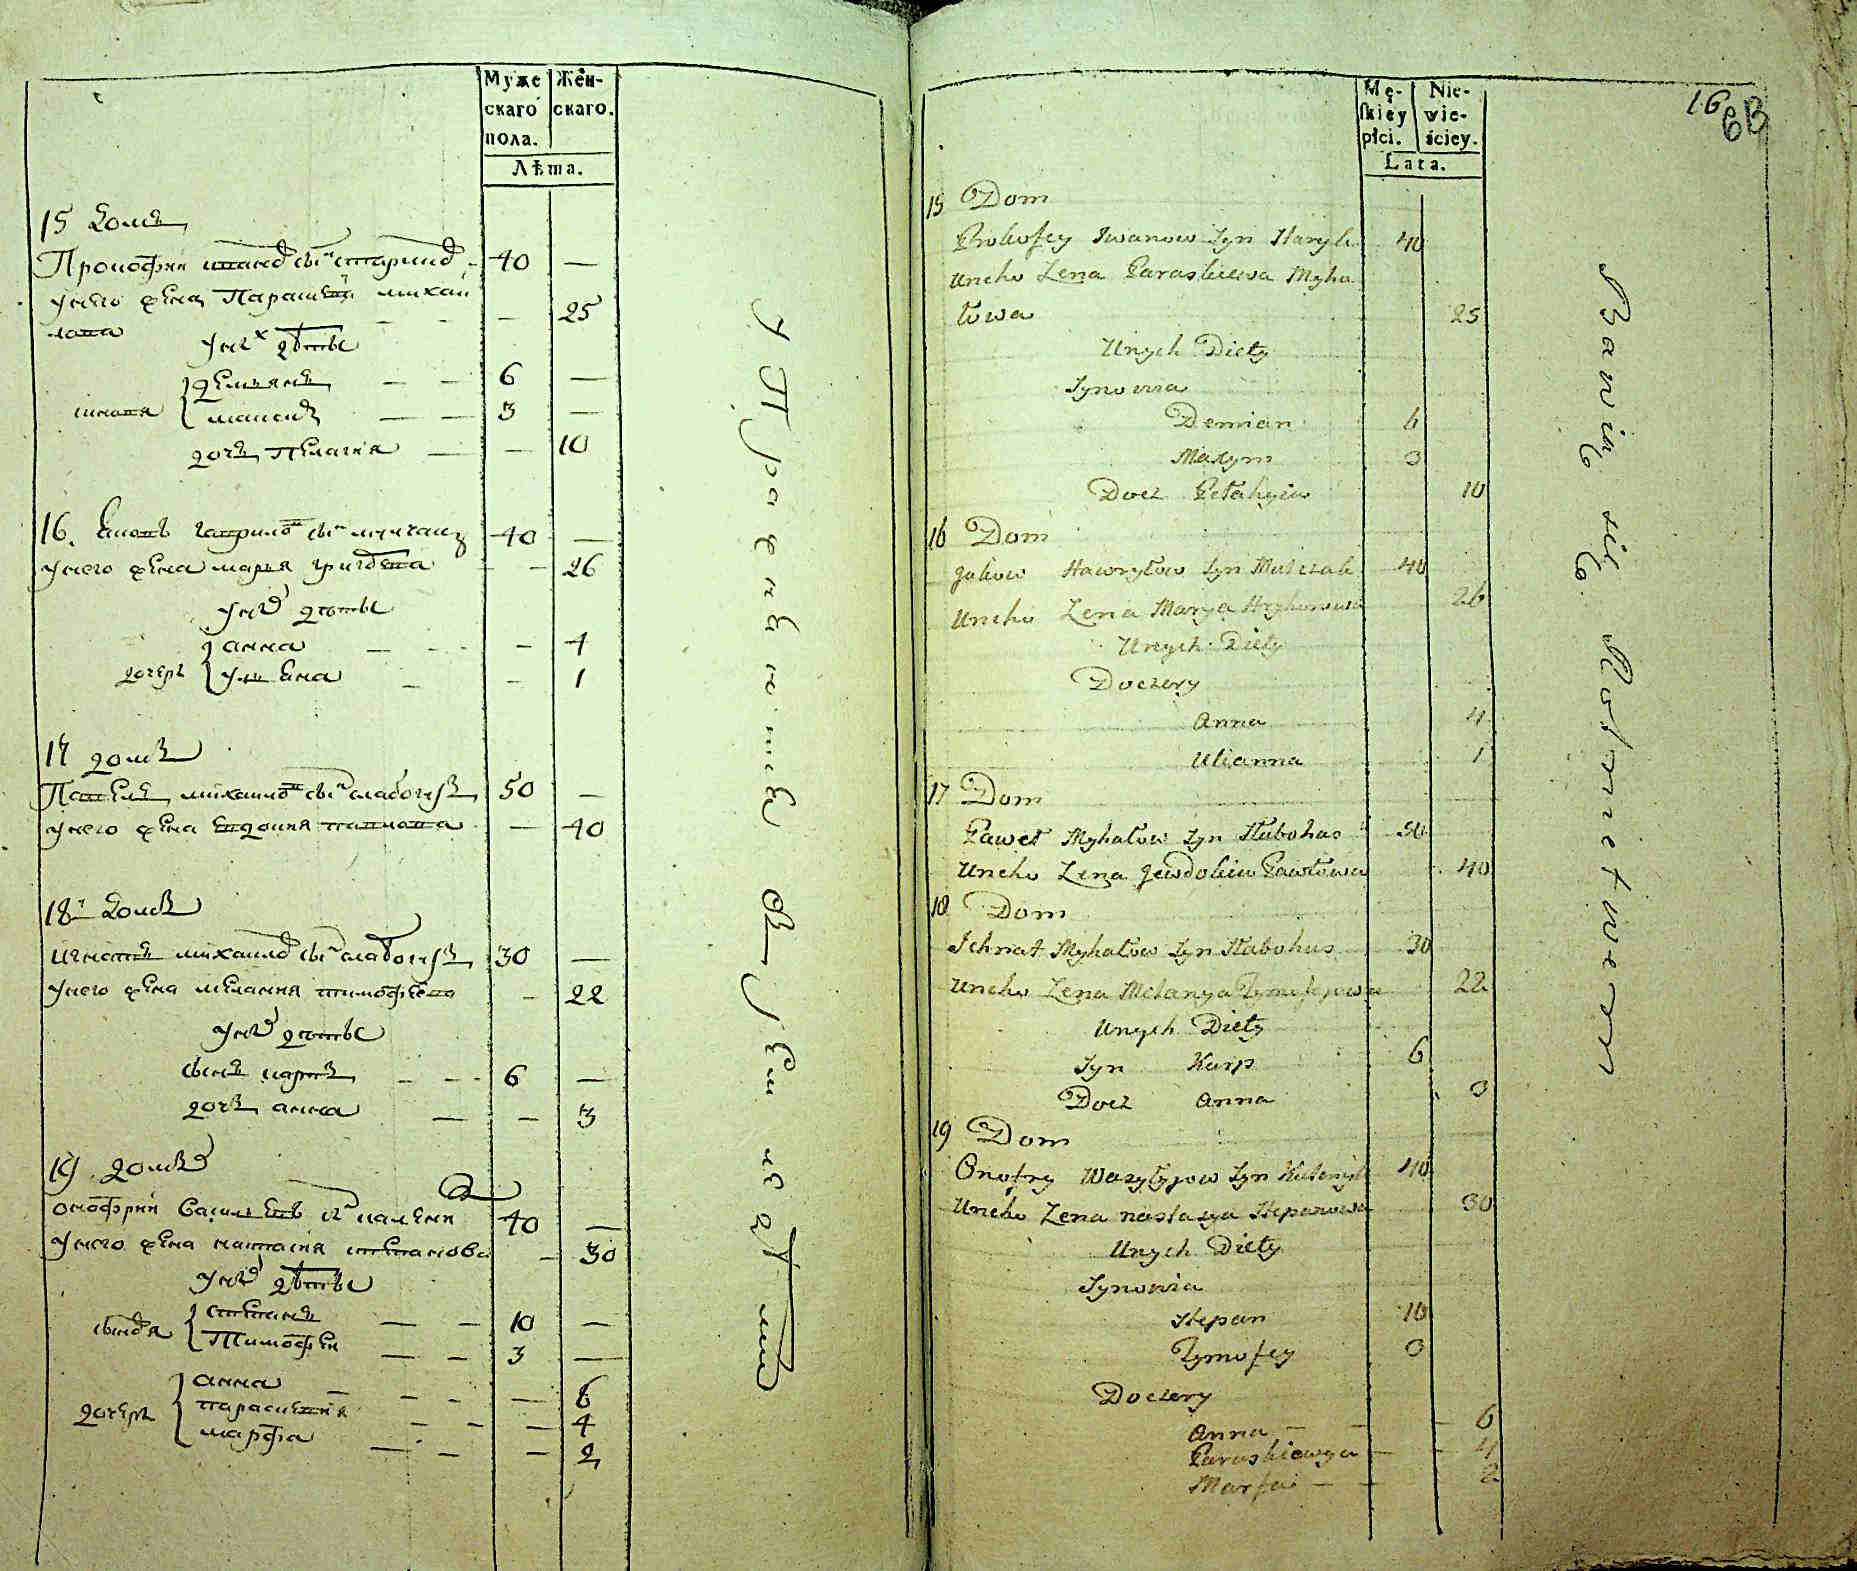 Муже
скаго
пола.
Жен-
скаго.
Лѣта.
15 домъ
40
у него жена Параскевія михай
лова
25
у них дѣти
демьянъ 6
максимъ 3
дочь Пелагия 10
16. Яковъ Гаврилов сын 40
у него жена марья григорева 26
у них дети
дочерь
анна 4
ульяна 1
17 домъ
Павелъ михайлов сын слабогузъ 50
у него жена Евдокия павлова 40
18й домъ
игнатъ михайлов сын слабогузъ 30
у него жена мелания тимофеева 22
у них дети
сынъ карпъ 6
дочь анна 3
19 домъ
онофрий Василевъ сын 40
у него жена настасия степанова 30
у них дѣти
сыновя
степанъ 10
Тимофей 3
дочерь
анна 6
параскевия 4
марфа 2
Mę-
skiey
płci.
Nie-
wie-
ściey.
Lata.
16
15 Dom
Prokofey Iwanow Syn 40
Uneho Żena Paraskiewa Myha
łowa 25
Unych Diety
Synowia
Demian 6
Maxym 3
Docz Pełahyia 10
16 Dom
Jakow Hawryłow Syn 40
Uneho Żena Marya Hryhorowa 26
Unych Diety
Doczery
Anna 4
Ulianna 1
17 Dom
Paweł Myhałow Syn Słabohus 50
Uneho Żena Jewdokia Pawłowa 40
18 Dom
Ichnat Myhałow Syn Słabohus 30
Uneho Żena Mełanya Tymofejowa 22
Unych Diety
Syn Karp 6
Docz Anna 3
19 Dom
Onofry Wasylyjow Syn 40
Uneho Żena nastazya Steparowa 30
Unych Diety
Synowia
Stepan 10
Tymofey 3
Doczery
Anna 6
Paraskiewya 4
Marfa 2
Bawią się Rolnictwem